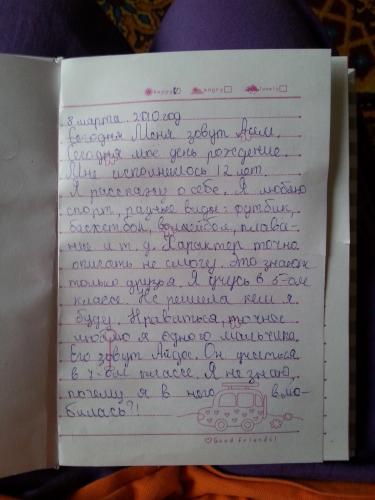 happy angry lovely
8 марта. 2010 год
Сегодня Меня зовут
Сегодня мне день рождение.
Мне исполнилось 12 лет.
Я расскажу о себе. Я люблю
спорт, разные виды: футбик,
баскетбол, волейбол, плава-
ние и т. д. Характер точно
описать не смогу. Это знают
только друзья. Я учусь в 5-ом
классе. Не решила кем я
буду. Нравиться, точнее
люблю я одного мальчика.
Его зовут Айдос. Он учиться
в 7-ом классе. Я не знаю,
почему я в него влю-
билась?!
Good friends!